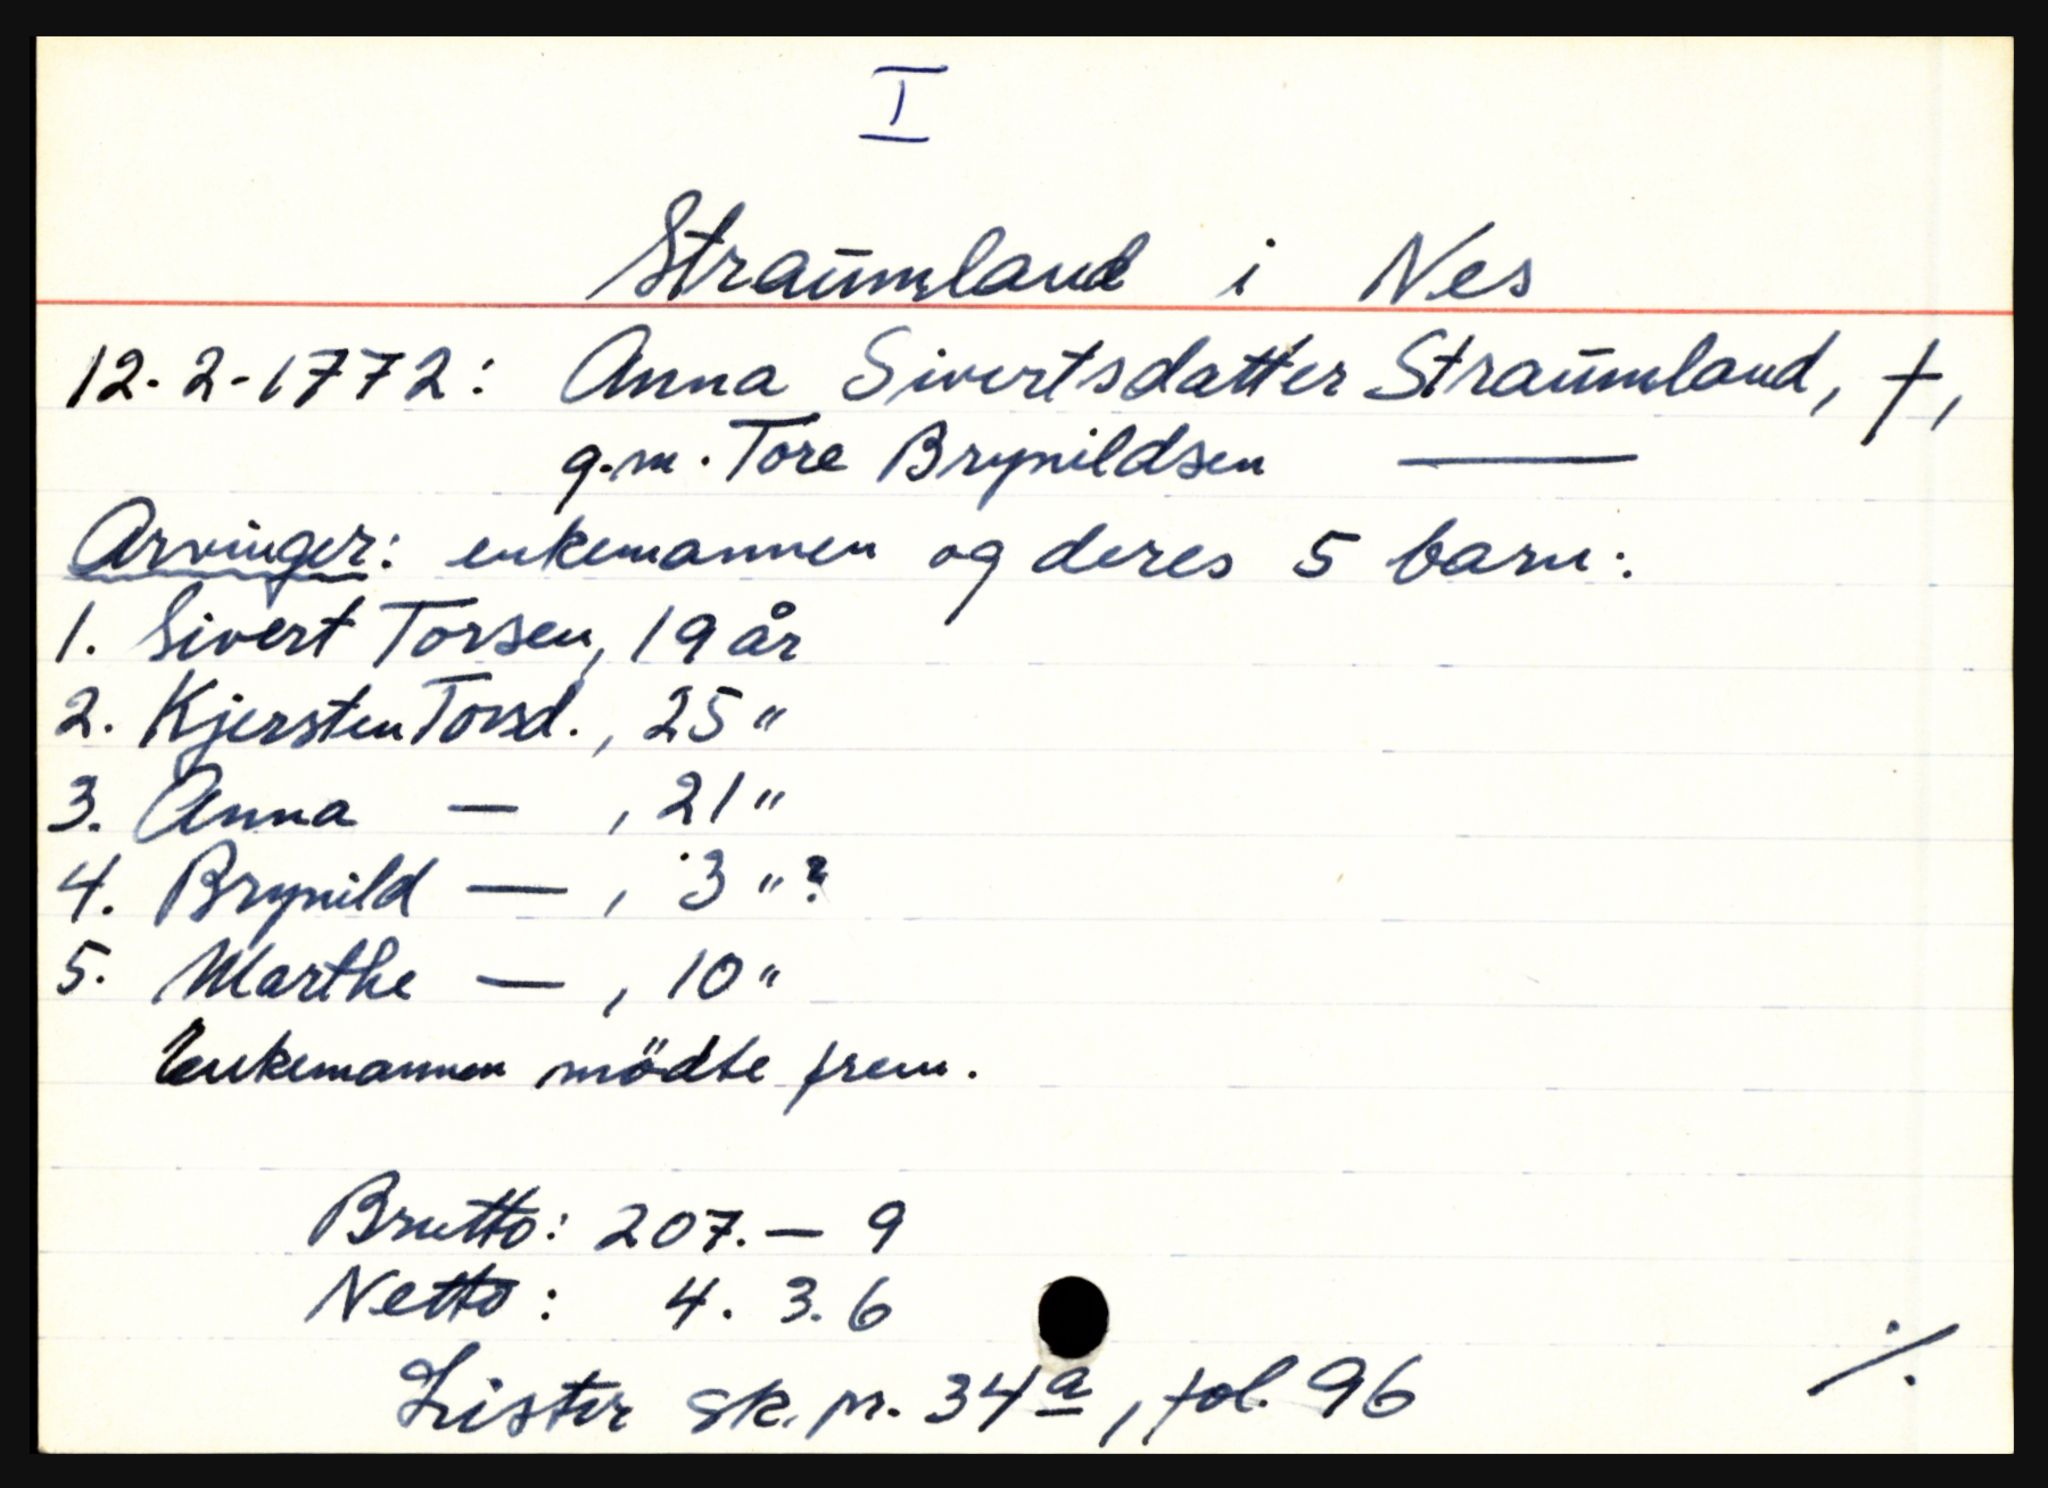 I
Straumland i Nes
12-2-1772: Anna Sivertsdatter Straumland, †,
g.m. Tore Brynildsen —
Arvinger: enkemannen og deres 5 barn:
1. Sivert Torsen, 19 år
2. Kjersten Torsd., 25 "
3. Anna — , 21 "
4. Brynild — , 3 " ?
5. Marthe — , 10 "
Enkemannen mödte frem.
Brutto: 207. — 9
Netto: 4. 3. 6
Lister sk. pr. 34a, fol. 96
./.